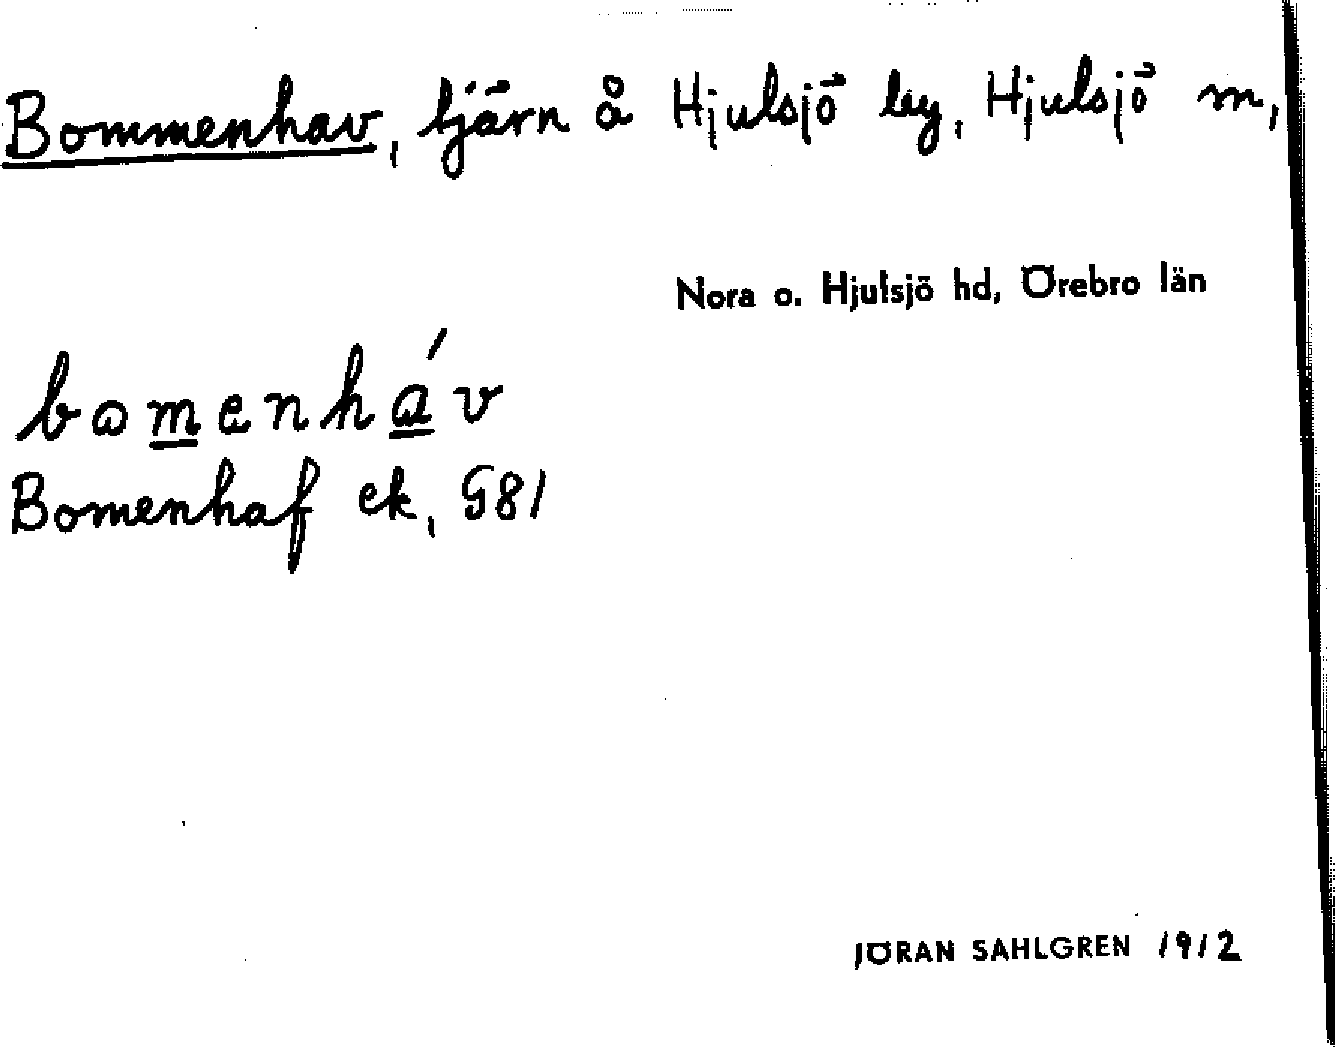 Bommenhav, tjärn å Hjulsjö by, Hjulsjö sn,
Nora o. Hjulsjö hd, Örebro län
bomenháv
Bomenhaf ek, G81
JÖRAN SAHLGREN 1912